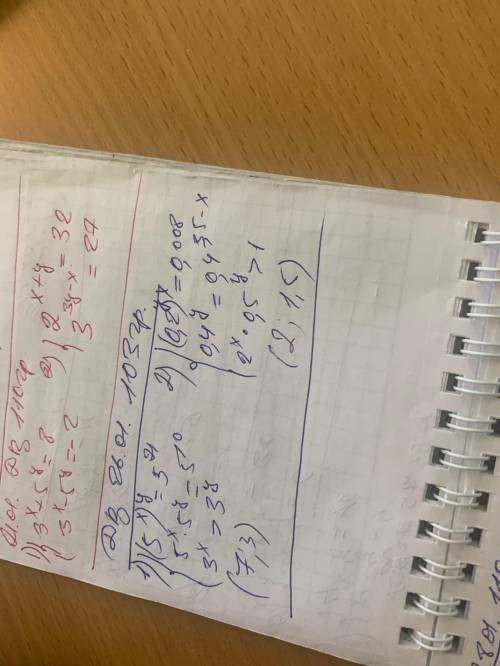 ДЗ 110гр
1) { 3^x + 5^y = 8
3^x - 5^y = -2
2) { 2^(x+y) = 32
3^(3y-x) = 27
ДЗ 26.01. 103гр.
1) { (5^x)^y = 5^21
5^x · 5^y = 5^10
3^x > 3^y
(7; 3)
2) { (0,2^y)^x = 0,008
0,4^y = 0,4^(3,5-x)
2^x · 0,5^y > 1
(2; 1,5)